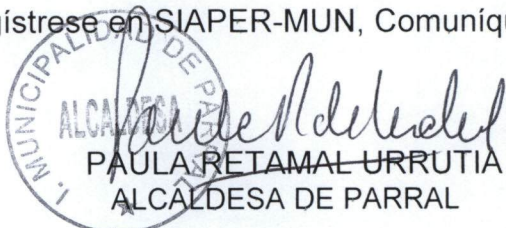 gístrese en SIAPER-MUN, Comuníqu
I. MUNICIPALIDAD DE PARRAL
ALCALDESA
PAULA RETAMAL URRUTIA
ALCALDESA DE PARRAL